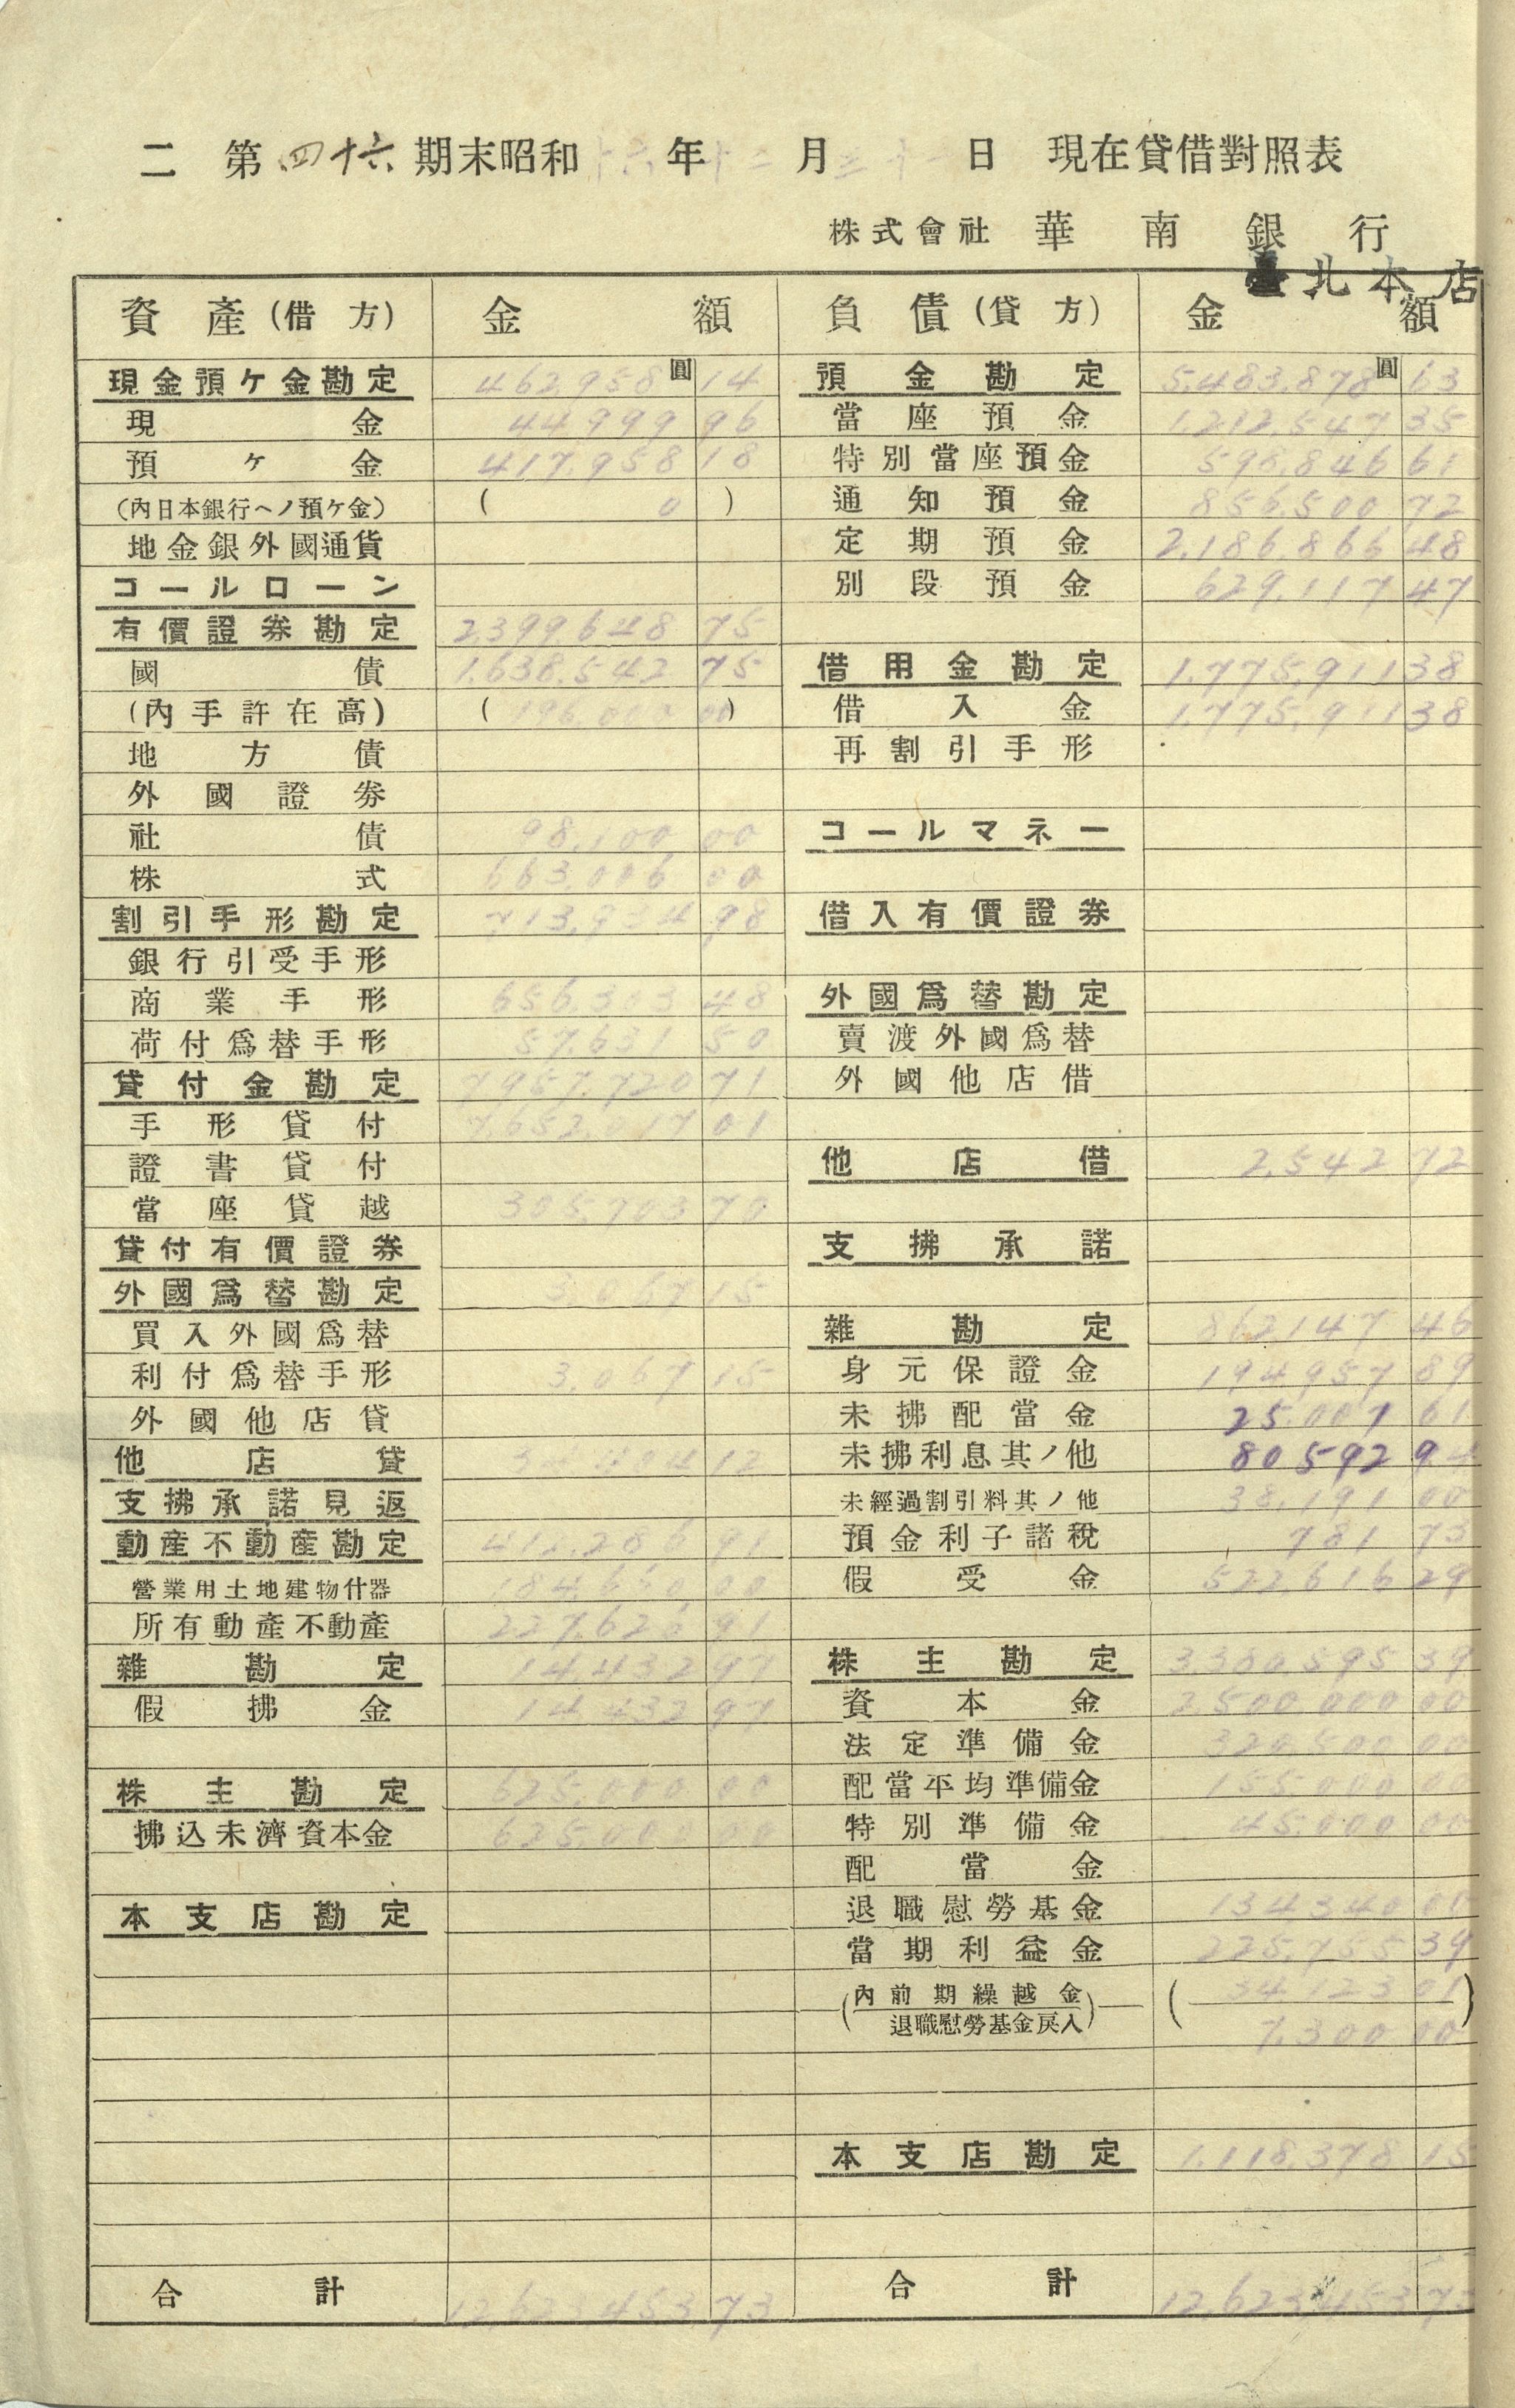 二 第四十六期末昭和十六年十二月三十一日 現在貸借對照表
株式會社 華南銀行
臺北本店
資產(借方) 金額
現金預ケ金勘定 462,958圓14
現金 44,999 96
預ケ金 417,958 18
(內日本銀行ヘノ預ケ金) ( 0 )
地金銀外國通貨
コールローン
有價證券勘定 2,399,648 75
國債 1,638,542 75
(內手許在高) ( 196,000 00 )
地方債
外國證券
社債 98,100 00
株式 663,006 00
割引手形勘定 713,934 98
銀行引受手形
商業手形 656,303 48
荷付爲替手形 57,631 50
貸付金勘定 7,957,720 71
手形貸付 7,652,017 01
證書貸付
當座貸越 305,703 70
貸付有價證券
外國爲替勘定 3,067 15
買入外國爲替
利付爲替手形 3,067 15
外國他店貸
他店貸 34,404 12
支拂承諾見返
動產不動產勘定 412,286 91
營業用土地建物什器 184,660 00
所有動產不動產 227,626 91
雜勘定 14,432 97
假拂金 14,432 97
株主勘定 625,000 00
拂込未濟資本金 625,000 00
本支店勘定
合計 12,623,453 73
負債(貸方) 金額
預金勘定 5,483,878圓63
當座預金 1,212,547 35
特別當座預金 598,846 61
通知預金 856,500 72
定期預金 2,186,866 48
別段預金 629,117 47
借用金勘定 1,775,911 38
借入金 1,775,911 38
再割引手形
コールマネー
借入有價證券
外國爲替勘定
賣渡外國爲替
外國他店借
他店借 2,542 72
支拂承諾
雜勘定 862,147 46
身元保證金 194,957 89
未拂配當金 25,007 61
未拂利息其ノ他 80,592 94
未經過割引料其ノ他 38,191 00
預金利子諸稅 781 73
假受金 522,616 29
株主勘定 3,380,595 39
資本金 2,500,000 00
法定準備金 320,500 00
配當平均準備金 155,000 00
特別準備金 45,000 00
配當金
退職慰勞基金 134,340 00
當期利益金 225,755 39
(內前期繰越金 (34,123 01)
退職慰勞基金戾入) 7,300 00
本支店勘定 1,118,378 15
合計 12,623,453 73